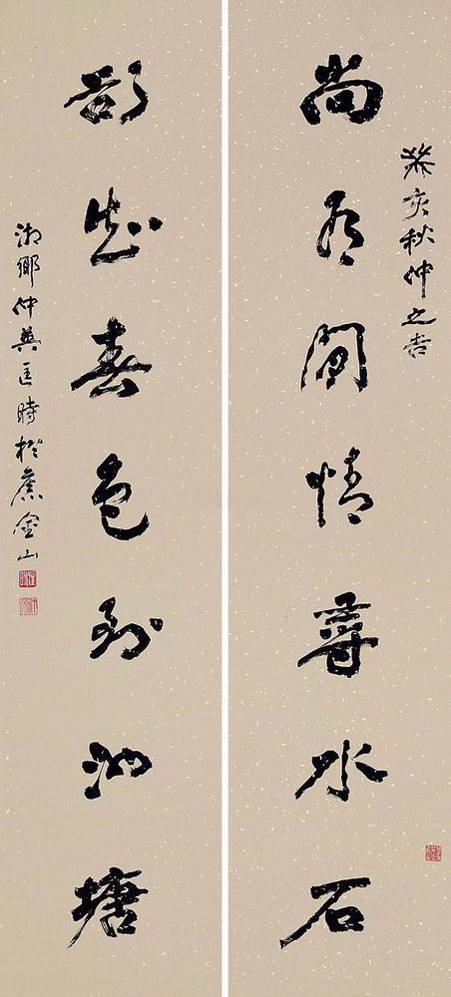 癸亥秋仲之吉
尚有閒情尋水石
卻知春色到池塘
湘鄉仲英匡時於焦金山